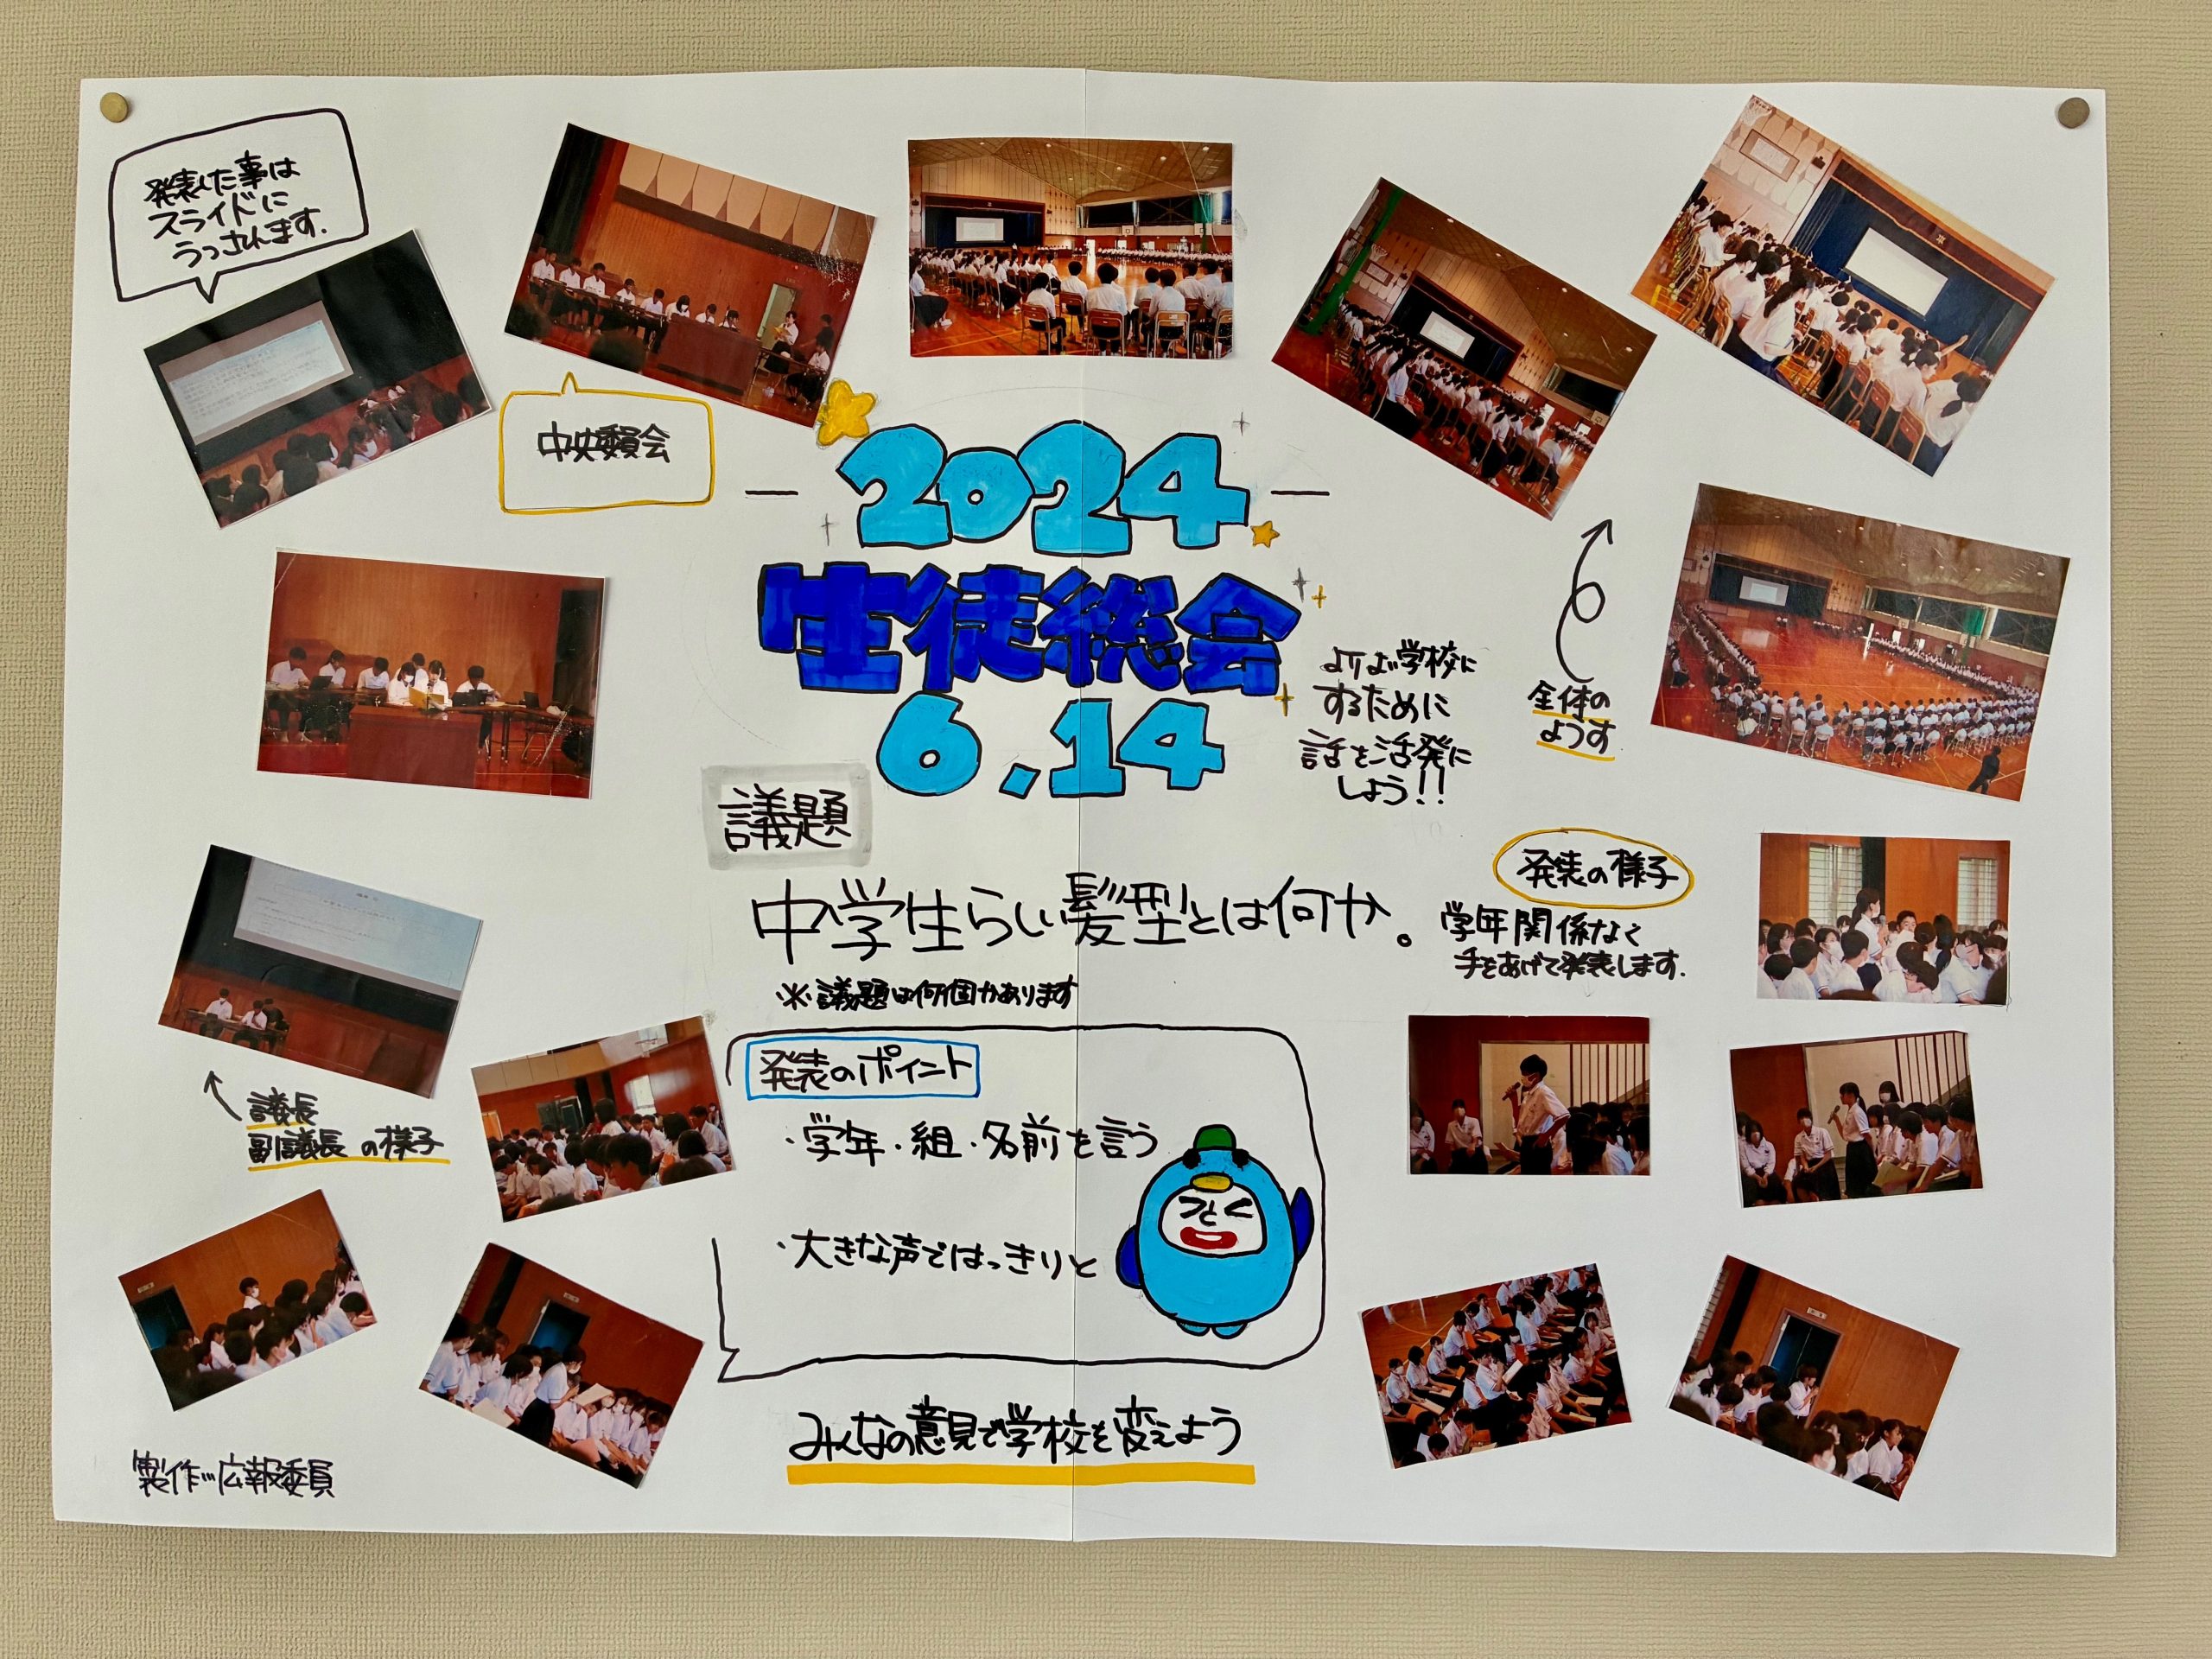 発表した事は
スライドに
うつされます.
中央委員会
2024
生徒総会
6.14
よりよい学校に
するために
話を活発に
しよう!!
全体の
ようす
議題
中学生らしい髪型とは何か。
※議題は何個かあります
発表の様子
学年関係なく
手をあげて発表します.
議長
副議長の様子
発表のポイント
・学年・組・名前を言う
・大きな声ではっきりと
みんなの意見で学校を変えよう
製作…広報委員